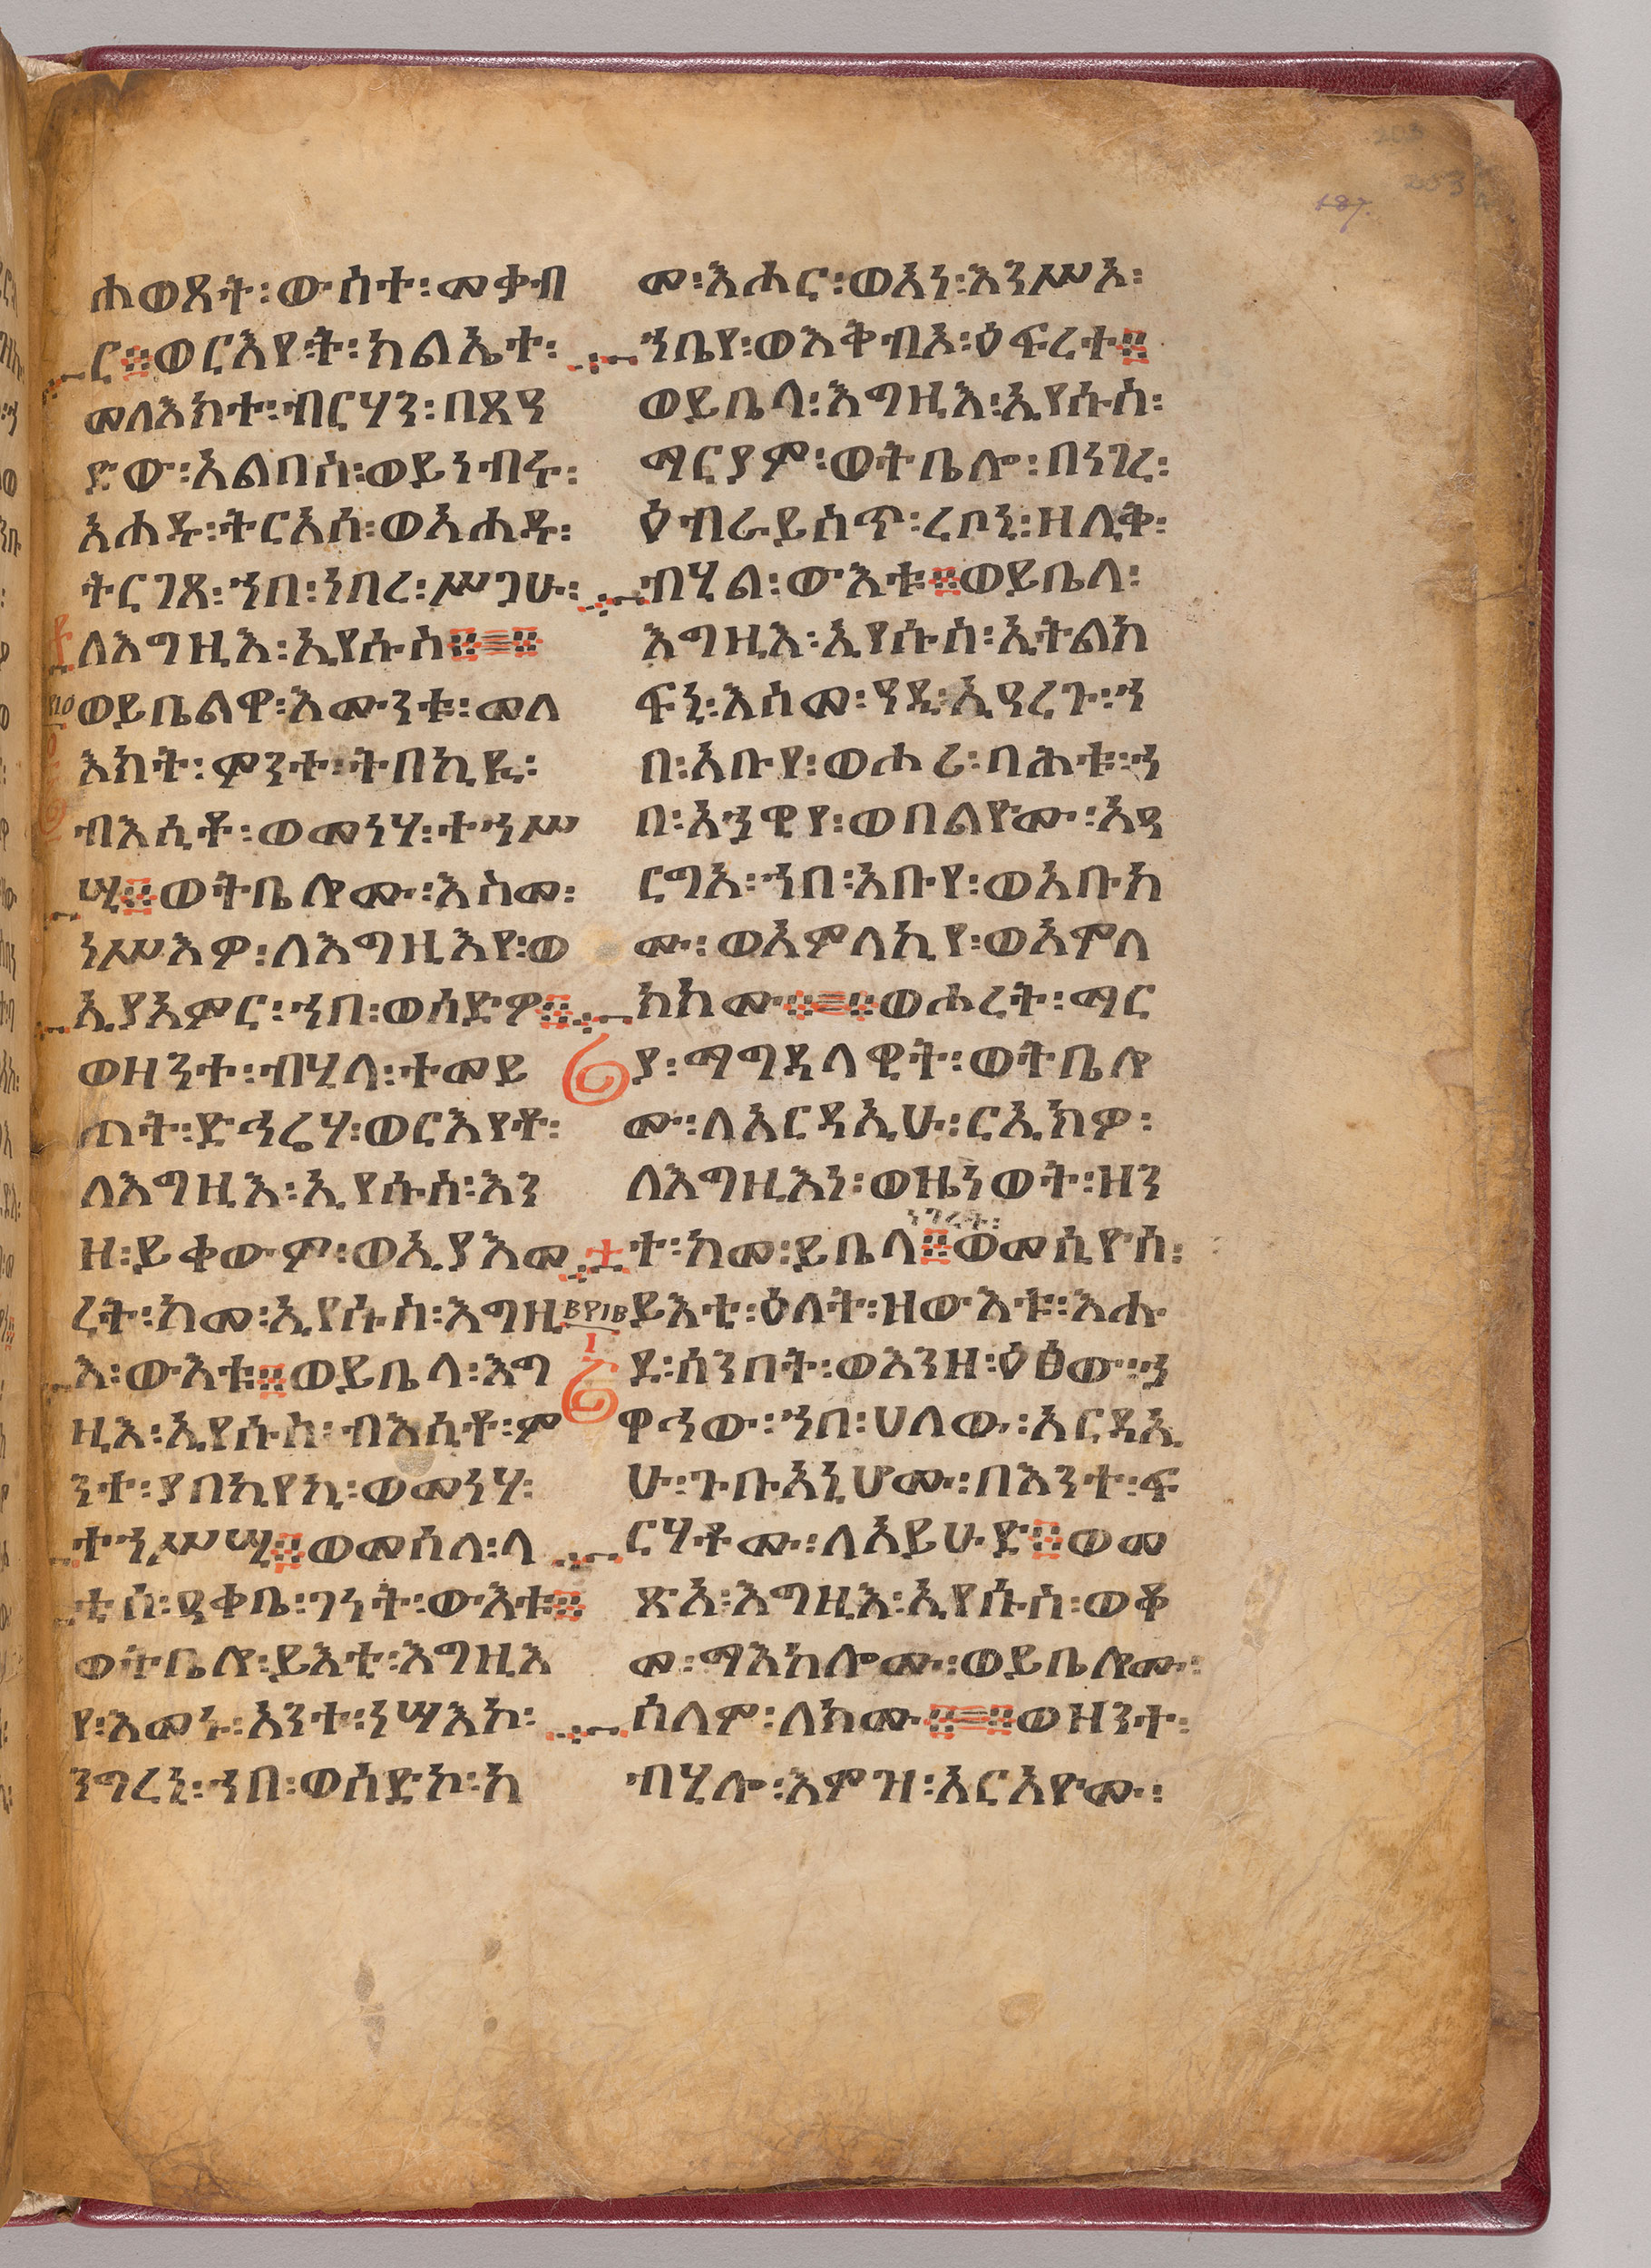 ሐወጸት፡ውስተ፡መቃብ
ር፨ወርእየት፡ክልኤተ፡
መላእክተ፡ብርሃን፡በጸዓ
ድው፡አልባስ፡ወይነብሩ፡
አሐዱ፡ትርአሰ፡ወአሐዱ፡
ትርገጸ፡ኀበ፡ነበረ፡ሥጋሁ፡
ለእግዚእ፡ኢየሱስ፨፨
ወይቤልዋ፡እሙንቱ፡መላ
እክት፡ምንተ፡ትበኪዪ፡
ብእሲቶ፡ወመነሃ፡ተኀሥ
ሢ፨ወትቤሎሙ፡እስመ፡
ነሥእዎ፡ለእግዚእየ፡ወ
ኢያአምር፡ኀበ፡ወሰድዎ፨
ወዘንተ፡ብሂላ፡ተመይ
ጠት፡ድኅሬሃ፡ወርእየቶ፡
ለእግዚእ፡ኢየሱስ፡እን
ዘ፡ይቀውም፡ወኢያእመ
ረት፡ከመ፡ኢየሱስ፡እግዚ
እ፡ውእቱ፨ወይቤላ፡እግ
ዚእ፡ኢየሱስ፡ብእሲቶ፡ም
ንተ፡ያበኪየኪ፡ወመነሃ፡
ተኀሥሢ፨ወመሰላ፡ላ
ቲሰ፡ዓቀቤ፡ገነት፡ውእቱ፨
ወትቤሎ፡ይእቲ፡እግዚእ
የ፡እመኑ፡አንተ፡ነሣእኮ፡
ንግረኒ፡ኀበ፡ወሰድኮ፡ከ
መ፡እሖር፡ወአነ፡እንሥኦ፡
ኀቤየ፡ወእቅብኦ፡ዕፍረተ፨
ወይቤላ፡እግዚእ፡ኢየሱስ፡
ማርያም፡ወትቤሎ፡በነገረ፡
ዕብራይስጥ፡ረቦኒ፡ዘሊቅ፡
ብሂል፡ውእቱ፨ወይቤላ፡
እግዚእ፡ኢየሱስ፡ኢትልክ
ፍኒ፡እስመ፡ዓዲ፡ኢዓረጉ፡ኀ
በ፡አቡየ፡ወሖሪ፡ባሕቱ፡ኀ
በ፡አኀዊየ፡ወበልዮሙ፡አዓ
ርግአ፡ኀበ፡አቡየ፡ወአቡክ
ሙ፡ወአምላኪየ፡ወአምላ
ክክሙ፨፨ወሖረት፡ማር
ያ፡ማግዳላዊት፡ወትቤሎ
ሙ፡ለአርዳኢሁ፡ርኢክዎ፡
ለእግዚእነ፡ወዜነወት፡ዘን
ነገረት፡
ተ፡ከመ፡ይቤላ፨ወመሲዮሰ፡
፪፻፲፪
ይእቲ፡ዕለት፡ዘውእቱ፡እሑ
ደ፡ሰንበት፡ወእንዘ፡ዕፅው፡ኀ
ዋኅው፡ኀበ፡ሀለው፡አርዳኢ
ሁ፡ጉቡአኒሆሙ፡በእንተ፡ፍ
ርሃቶሙ፡ለአይሁድ፨ወመ
ጽአ፡እግዚእ፡ኢየሱስ፡ወቆ
መ፡ማእከሎሙ፡ወይቤሎሙ፡
ሰላም፡ለክሙ፨፨ወዘንተ፡
ብሂሎ፡እምዝ፡አርአዮሙ፡